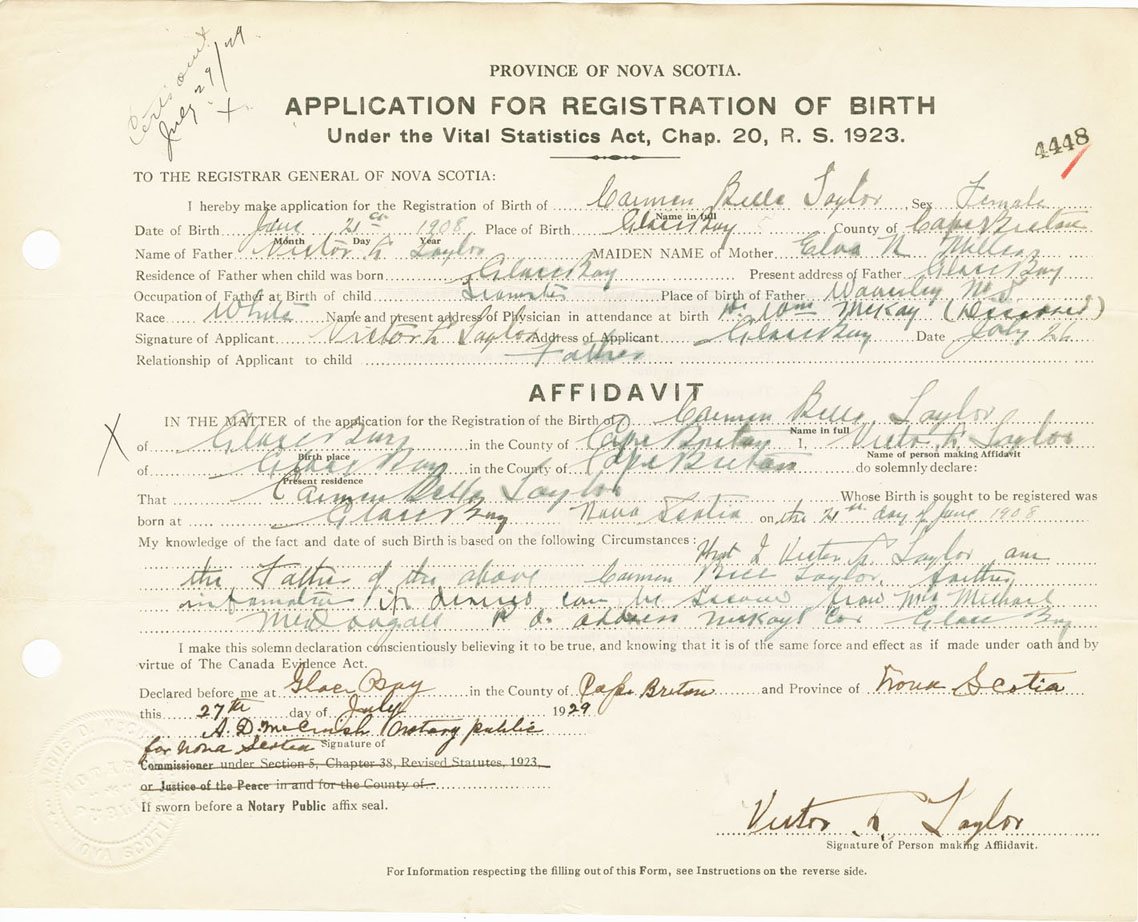 Cert. out
July 29/29
PROVINCE OF NOVA SCOTIA.
APPLICATION FOR REGISTRATION OF BIRTH
Under the Vital Statistics Act, Chap. 20, R. S. 1923.
4448
TO THE REGISTRAR GENERAL OF NOVA SCOTIA:
I hereby make application for the Registration of Birth of Carmen Bell Taylor Sex Female
Name in full
Date of Birth June 21st 1908 Place of Birth Glace Bay County of Cape Breton
Month Day Year
Name of Father Victor Taylor MAIDEN NAME of Mother N
Residence of Father when child was born Glace Bay Present address of Father Glace Bay
Occupation of Father at Birth of child Place of birth of Father Waverley N.S
Race White Name and present address of Physician in attendance at birth Dr Wm McKay (Deceased)
Signature of Applicant Victor Taylor Address of Applicant Glace Bay Date July 26
Relationship of Applicant to child Father
AFFIDAVIT
IN THE MATTER of the application for the Registration of the Birth of Carmen Bell Taylor
Name in full
X of Glace Bay in the County of Cape Breton I, Victor Taylor
Birth place Name of person making Affidavit
of Glace Bay in the County of Cape Breton do solemnly declare:
Present residence
That Carmen Bell Taylor Whose Birth is sought to be registered was
born at Glace Bay Nova Scotia on the 21st day of June 1908
My knowledge of the fact and date of such Birth is based on the following Circumstances: that I Victor Taylor am
the Father of the above Carmen Bell Taylor. further
information if desired can be secured from Mrs Michael
McDougall P. O. address McKays Cor Glace Bay
I make this solemn declaration conscientiously believing it to be true, and knowing that it is of the same force and effect as if made under oath and by
virtue of The Canada Evidence Act.
Declared before me at Glace Bay in the County of Cape Breton and Province of Nova Scotia
this 27th day of July 1929
A. D. McCuish Notary public
for Nova Scotia Signature of
Commissioner under Section 5, Chapter 38, Revised Statutes, 1923,
or Justice of the Peace in and for the County of
If sworn before a Notary Public affix seal.
Victor Taylor
Signature of Person making Affidavit.
For Information respecting the filling out of this Form, see Instructions on the reverse side.